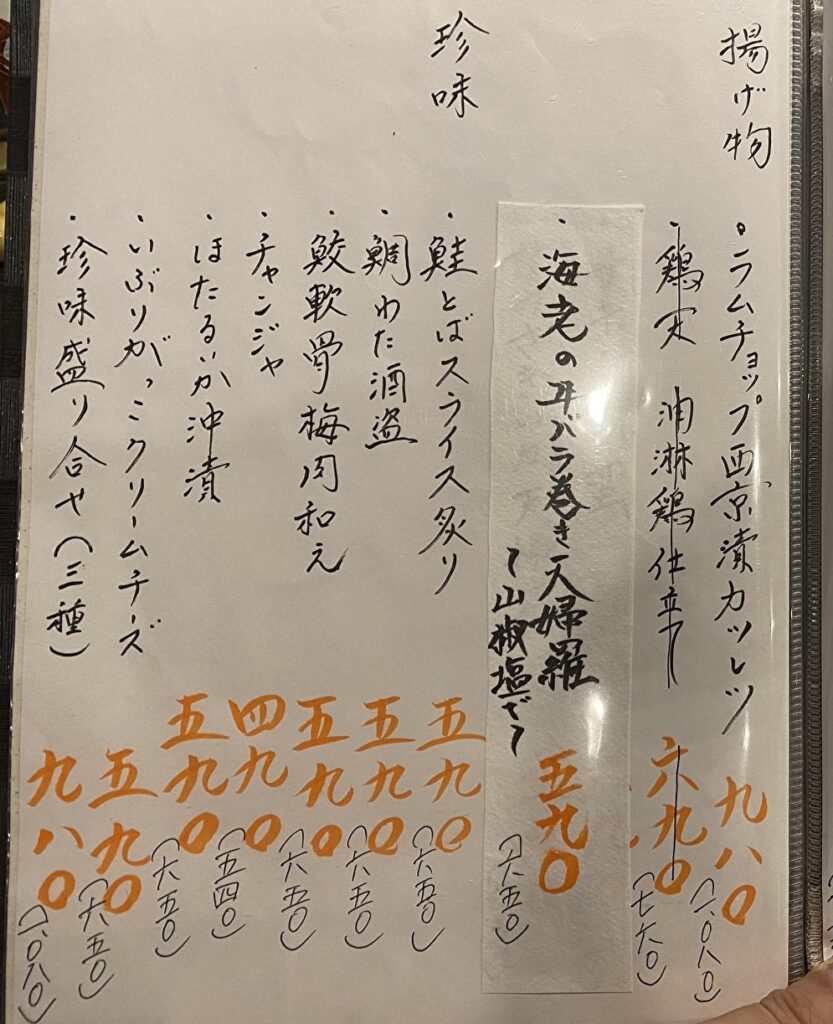 揚げ物
・ラムチョップ西京漬カツレツ 九八〇 (一、〇八〇)
・鶏天 油淋鶏仕立て 六九〇 (七六〇)
・海老の豚バラ巻き天婦羅 五九〇 (六五〇)
〜山椒塩で〜
珍味
・鮭とばスライス炙り 五九〇 (六五〇)
・鯛わた酒盗 五九〇 (六五〇)
・鮫軟骨梅肉和え 五九〇 (六五〇)
・チャンジャ 四九〇 (五四〇)
・ほたるいか沖漬 五九〇 (六五〇)
・いぶりがっこクリームチーズ 五九〇 (六五〇)
・珍味盛り合せ(三種) 九八〇 (一、〇八〇)